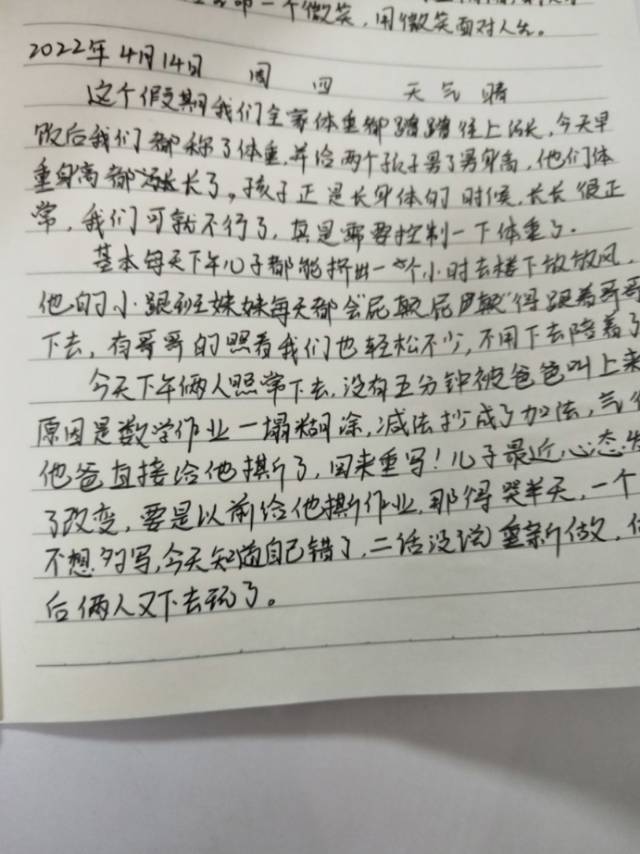 一个微笑，用微笑面对人生。
2022年4月14日 周四 天气晴
这个假期我们全家体重都蹭蹭往上涨，今天早
饭后我们都称了体重，并给两个孩子量了身高，他们体
重身高都长了。孩子正是长身体的时候，长长很正
常，我们可就不行了，真是需要控制一下体重了。
基本每天下午儿子都能挤出一个小时去楼下放放风，
他的小跟班妹妹每天都会“屁颠屁颠”得跟着哥哥
下去，有哥哥的照看我们也轻松不少，不用下去陪着了
今天下午俩人照常下去，没有五分钟被爸爸叫上来
原因是数学作业一塌糊涂，减法抄成了加法，气得
他爸直接给他撕了，回来重写！儿子最近心态发
了改变，要是以前给他撕作业，那得哭半天，一个
不想写，今天知道自己错了，二话没说重新做，
后俩人又下去玩了。